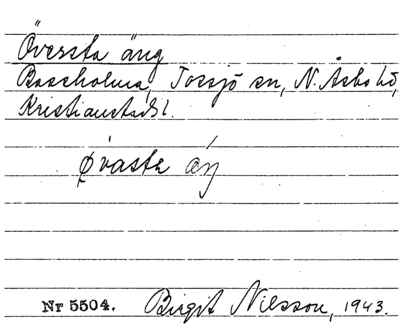 Översta äng
Boarholma, Tossjö sn, N. Åsbo hd,
Kristianstads l.
øvasta áŋ
Nr 5504. Birgit Nilsson, 1943.